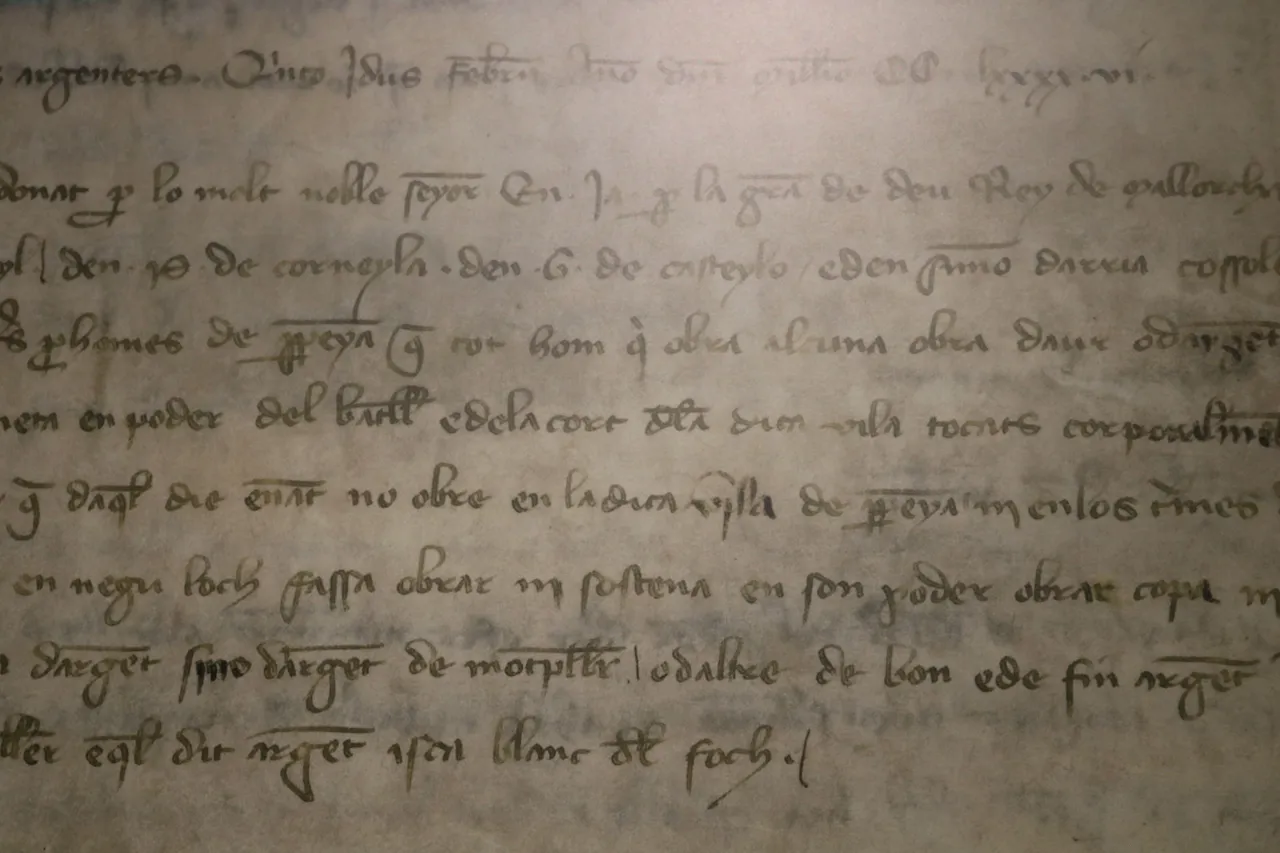 argenters. Q'nto Idus Febr̄ Āno dn̄i mill̄io CC lxxxvi.
donat p̱ lo molt noble seyor En Ja. p̱ la gr̄a de deu Rey de mallorch
den .P. de corneyla . den .G. de casteylo / eden simo darria cossol
p̱homes de p̱peyā q̄ tot hom q̍ obra alcuna obra daur odarget̄
en poder del batll̄ edela cort dl̄a dita vila tocats corporalm̄e
q̄ daq̄l die enāt no obre en ladita vila de p̱peyā ni enlos t̍mes
en negu loch fassa obrar ni sostena en son poder obrar copa ni
darget̄ sino darget̄ de motpll̄r / odaltre de bon ede fin arget̄
ll̄er eq̄l dit arget̄ isca blanc dl̄ foch ./